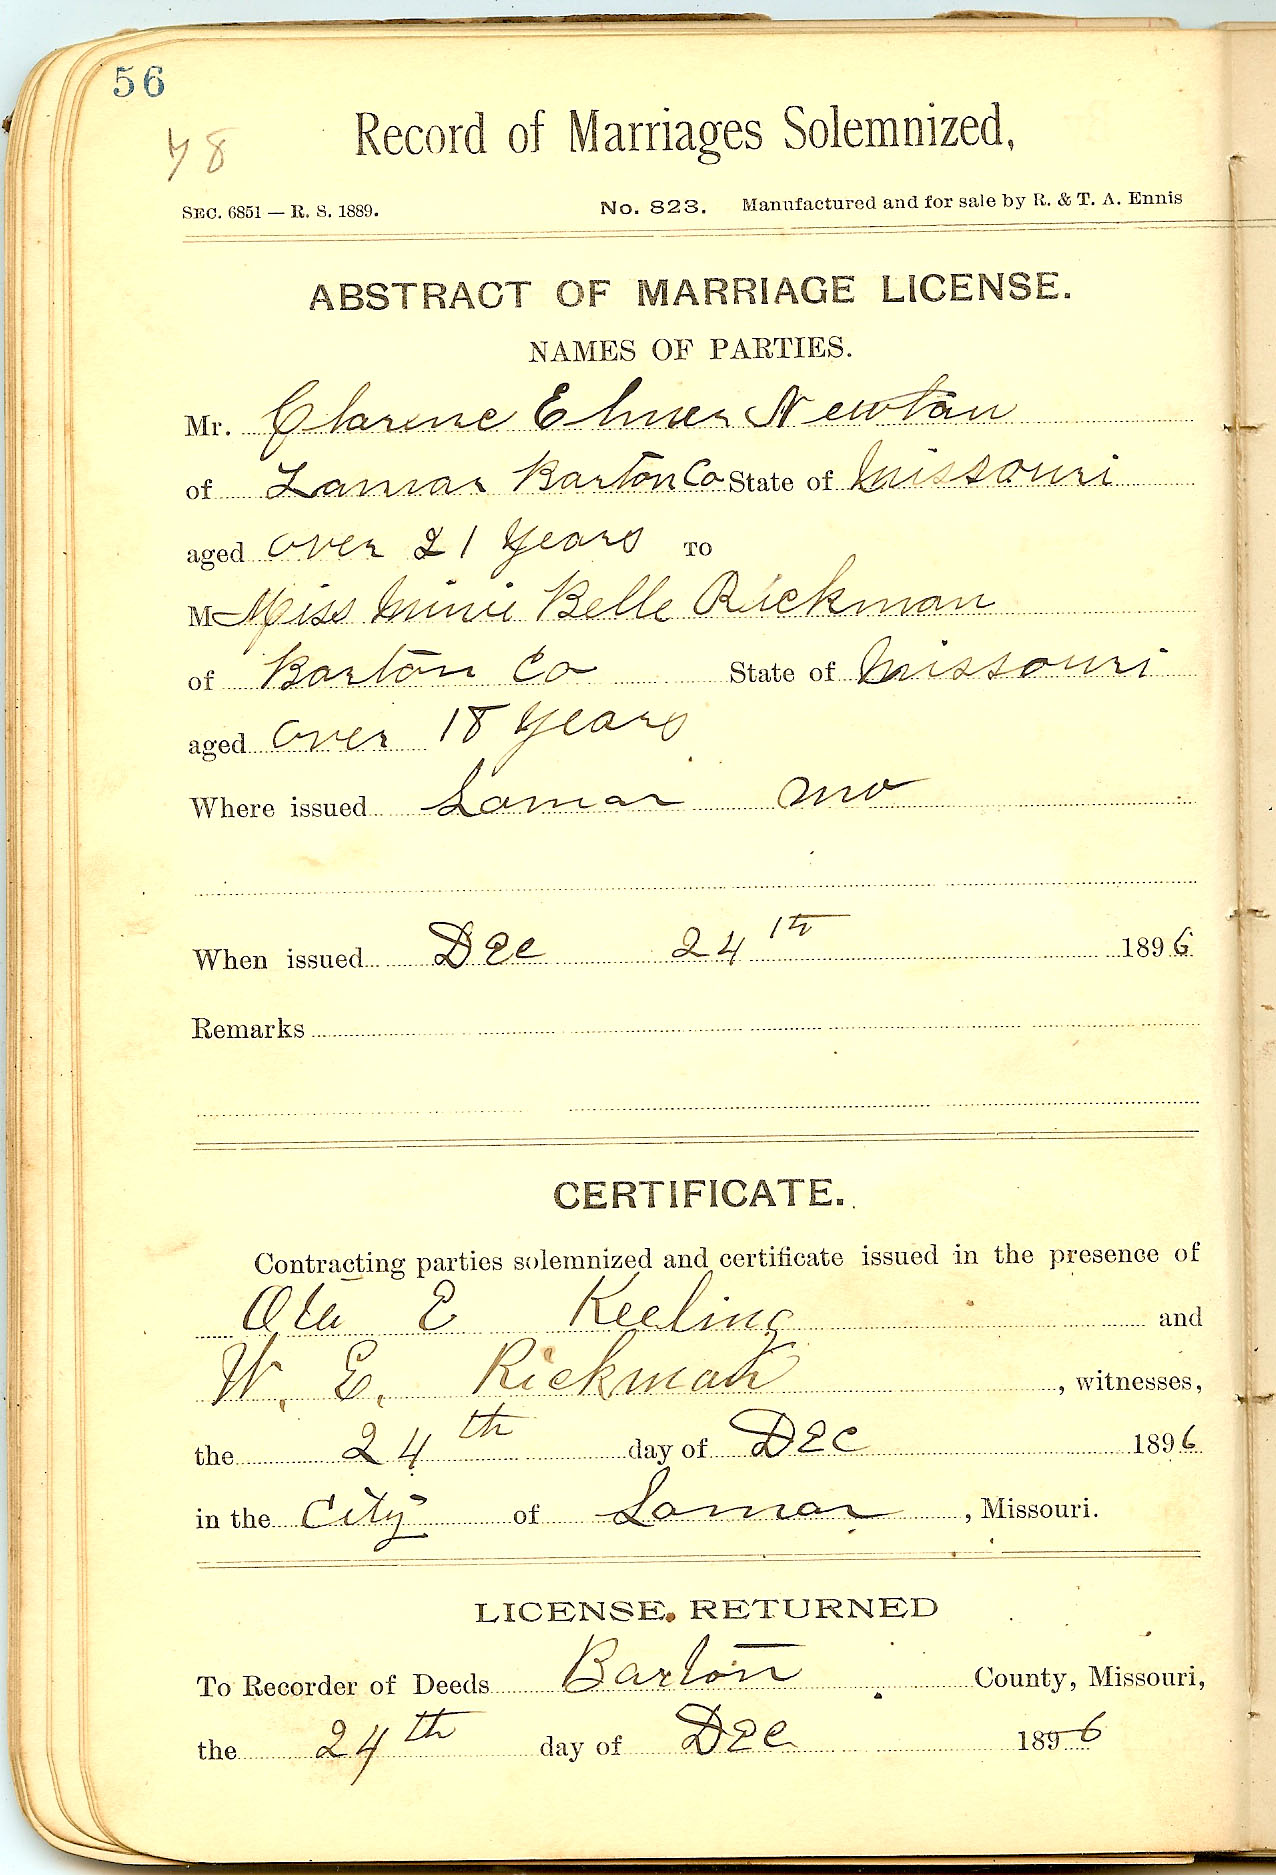 56
48
Record of Marriages Solemnized,
SEC. 6851 — R. S. 1889. No. 823. Manufactured and for sale by R. & T. A. Ennis
ABSTRACT OF MARRIAGE LICENSE.
NAMES OF PARTIES.
Mr. Clarence Elmer Newton
of Lamar Barton Co State of Missouri
aged over 21 years TO
M Miss Minie Belle Rickman
of Barton Co State of Missouri
aged over 18 years
Where issued Lamar Mo
When issued Dec 24th 1896
Remarks
CERTIFICATE.
Contracting parties solemnized and certificate issued in the presence of
E Keeling and
W. E. Rickman, witnesses,
the 24th day of Dec 1896
in the City of Lamar, Missouri.
LICENSE RETURNED
To Recorder of Deeds Barton County, Missouri,
the 24th day of Dec 1896